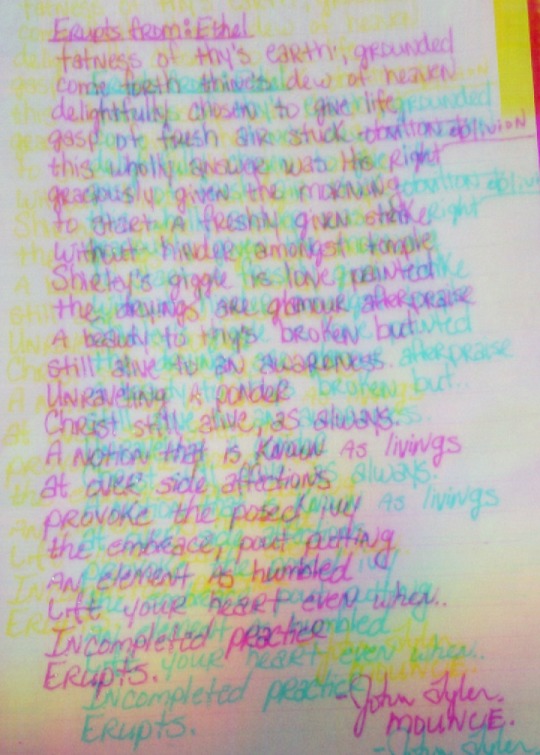 Erupts from: Ethel
fatness of thy's earth, grounded
come forth thine's dew of heaven
delightfully chosen to give life
gasp of fresh air stuck oblivion
this wholly answer was His Right
graciously given the morning
to start A freshly given strike
without hinder amongst temple
Shirley's giggle is love painted
the dryings are glamour after praise
A beauty to thy's broken but
still alive to an awareness.
Unraveling A ponder
Christ still alive, as always.
A notion that is Known As livings
at over side affections
provoke the posed
the embrace, pout putting
AN element As humbled
Lift your heart even when..
Incompleted practice
Erupts.
John Tyler.
MOUNCE.